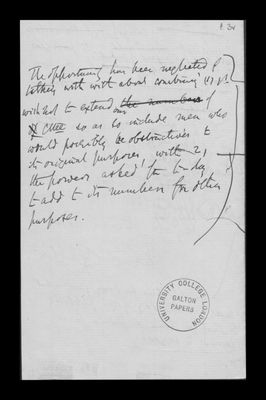 p. 34
The opportunity has been neglected of
talking with with about combining
wished to extend any the numbers of
Cttee so as to include men who
would possibly be obstructives to
its original purposes, with
the powers asked for to-day
to add to its numbers for other
purposes.
UNIVERSITY COLLEGE LONDON
GALTON
PAPERS